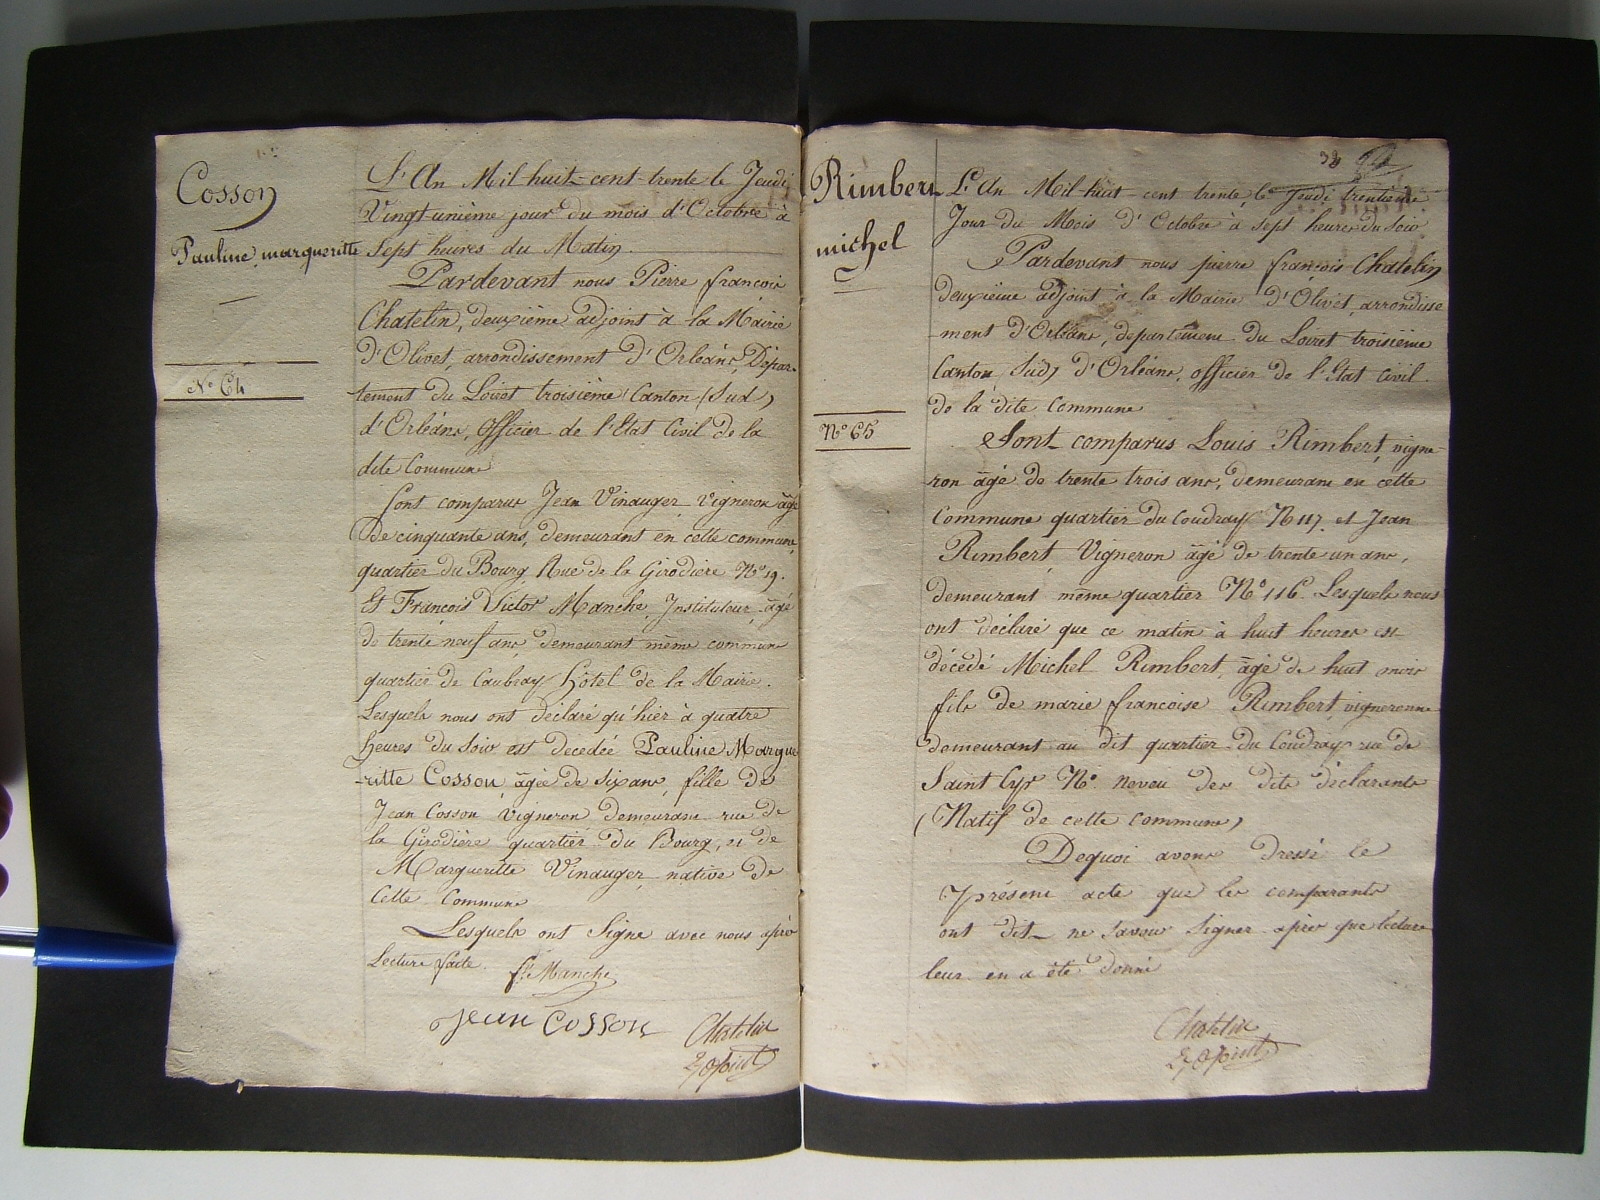 Cosson
Pauline margueritte
N° 64
L'An Mil huit-cent-trente le Jeudi
Vingt unième jour du mois d'Octobre à
Sept heures du Matin.
Pardevant nous Pierre françois
Chatelin, deuxième adjoint à la Mairie
d'Olivet, arrondissement d'Orléans, Dépar-
tement du Loiret troisième Canton (Sud)
d'Orléans, Officier de l'Etat Civil de la
dite Commune
Sont comparus Jean Vinauger, Vigneron âgé
de cinquante ans, demeurant en cette commune,
quartier du Bourg, Rue de la Girodière N° 19.
Et François Victor Manche, Instituteur, âgé
de trente neuf ans, demeurant même commune
quartier de Caubray Hôtel de la Mairie.
Lesquels nous ont déclaré qu'hier à quatre
heures du soir est décédée Pauline Margue
-ritte Cosson, âgée de six ans, fille de
Jean Cosson Vigneron demeurant rue de
la Girodière quartier du Bourg, et de
Margueritte Vinauger native de
Cette Commune
Lesquels ont Signé avec nous après
Lecture faite. Manche
Jean Cosson Chatelin
adjoint
38
Rimbert
michel
N° 65
L'An Mil huit cent trente, le Jeudi trentième
Jour du Mois d'Octobre à sept heures du soir
Pardevant nous pierre françois Chatelin
deuxième adjoint à la Mairie d'Olivet, arrondisse
ment d'Orléans, departement du Loiret troisième
Canton (Sud) d'Orléans, officier de l'Etat Civil
de la dite Commune
Sont comparus Louis Rimbert, vigne-
ron âgé de trente trois ans, demeurant en cette
Commune quartier du Coudray N° 117. et Jean
Rimbert, Vigneron âgé de trente un ans,
demeurant même quartier N° 116. Lesquels nous
ont déclaré que ce matin à huit heures est
décédé Michel Rimbert, âgé de huit mois
fils de marie françoise Rimbert, vigneronne
demeurant au dit quartier du Coudray rue de
Saint Cyr N° neveu des dits déclarants
(Natif de cette commune)
Dequoi avons dressé le
présent acte que les comparants
ont dit ne savoir Signer après que lecture
leur en a été donné
Chatelin
adjoint